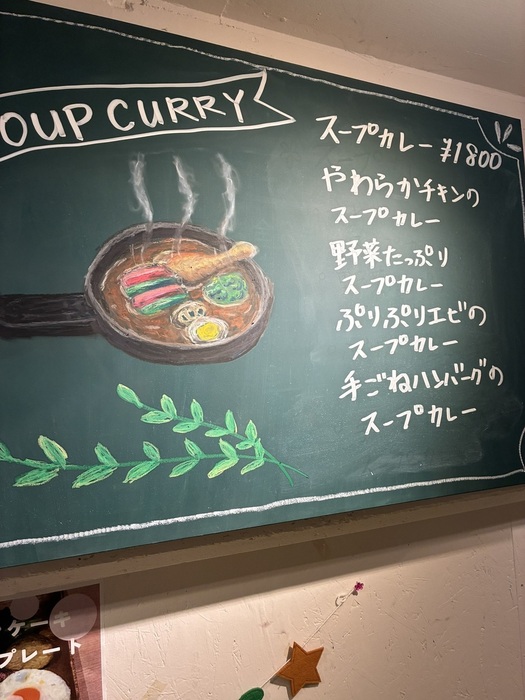 OUP CURRY
スープカレー ¥1800
やわらかチキンの
スープカレー
野菜たっぷり
スープカレー
ぷりぷりエビの
スープカレー
手ごねハンバーグの
スープカレー
ケーキ
プレート